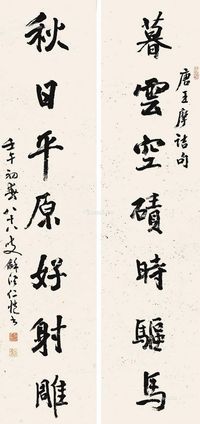 暮雲空磧時驅馬
唐王摩詰句
秋日平原好射雕
壬午初春八十八叟薛溪仁愷書